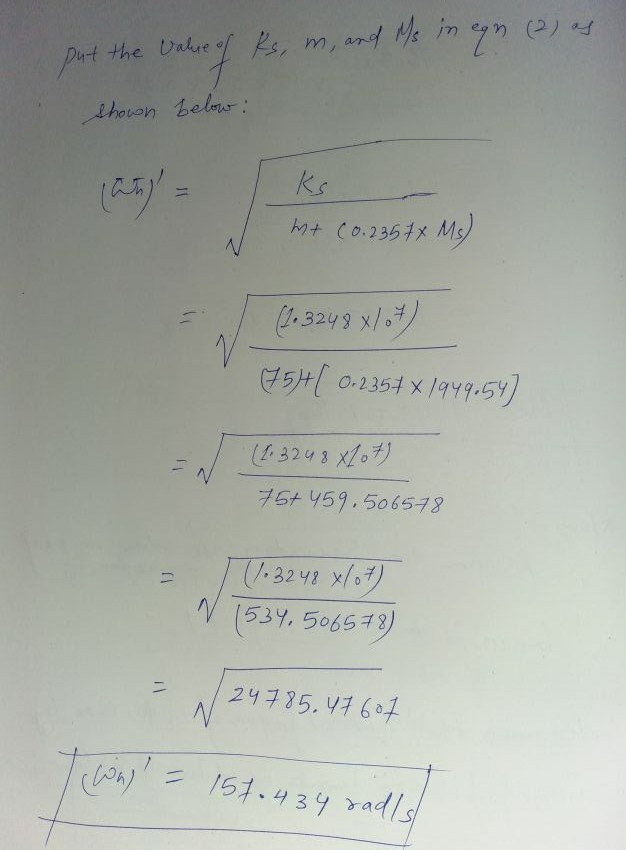 Put the value of Ks, m, and Ms in eqn (2) as
shown below:
(ωn)' = √(Ks / m+ (0.2357× Ms))
= √((1.3248 ×10^7) / (75)+[ 0.2357 × 1949.54])
= √((1.3248 ×10^7) / 75+ 459.506578)
= √((1.3248 ×10^7) / (534.506578))
= √24785.47607
(ωn)' = 157.434 rad/s